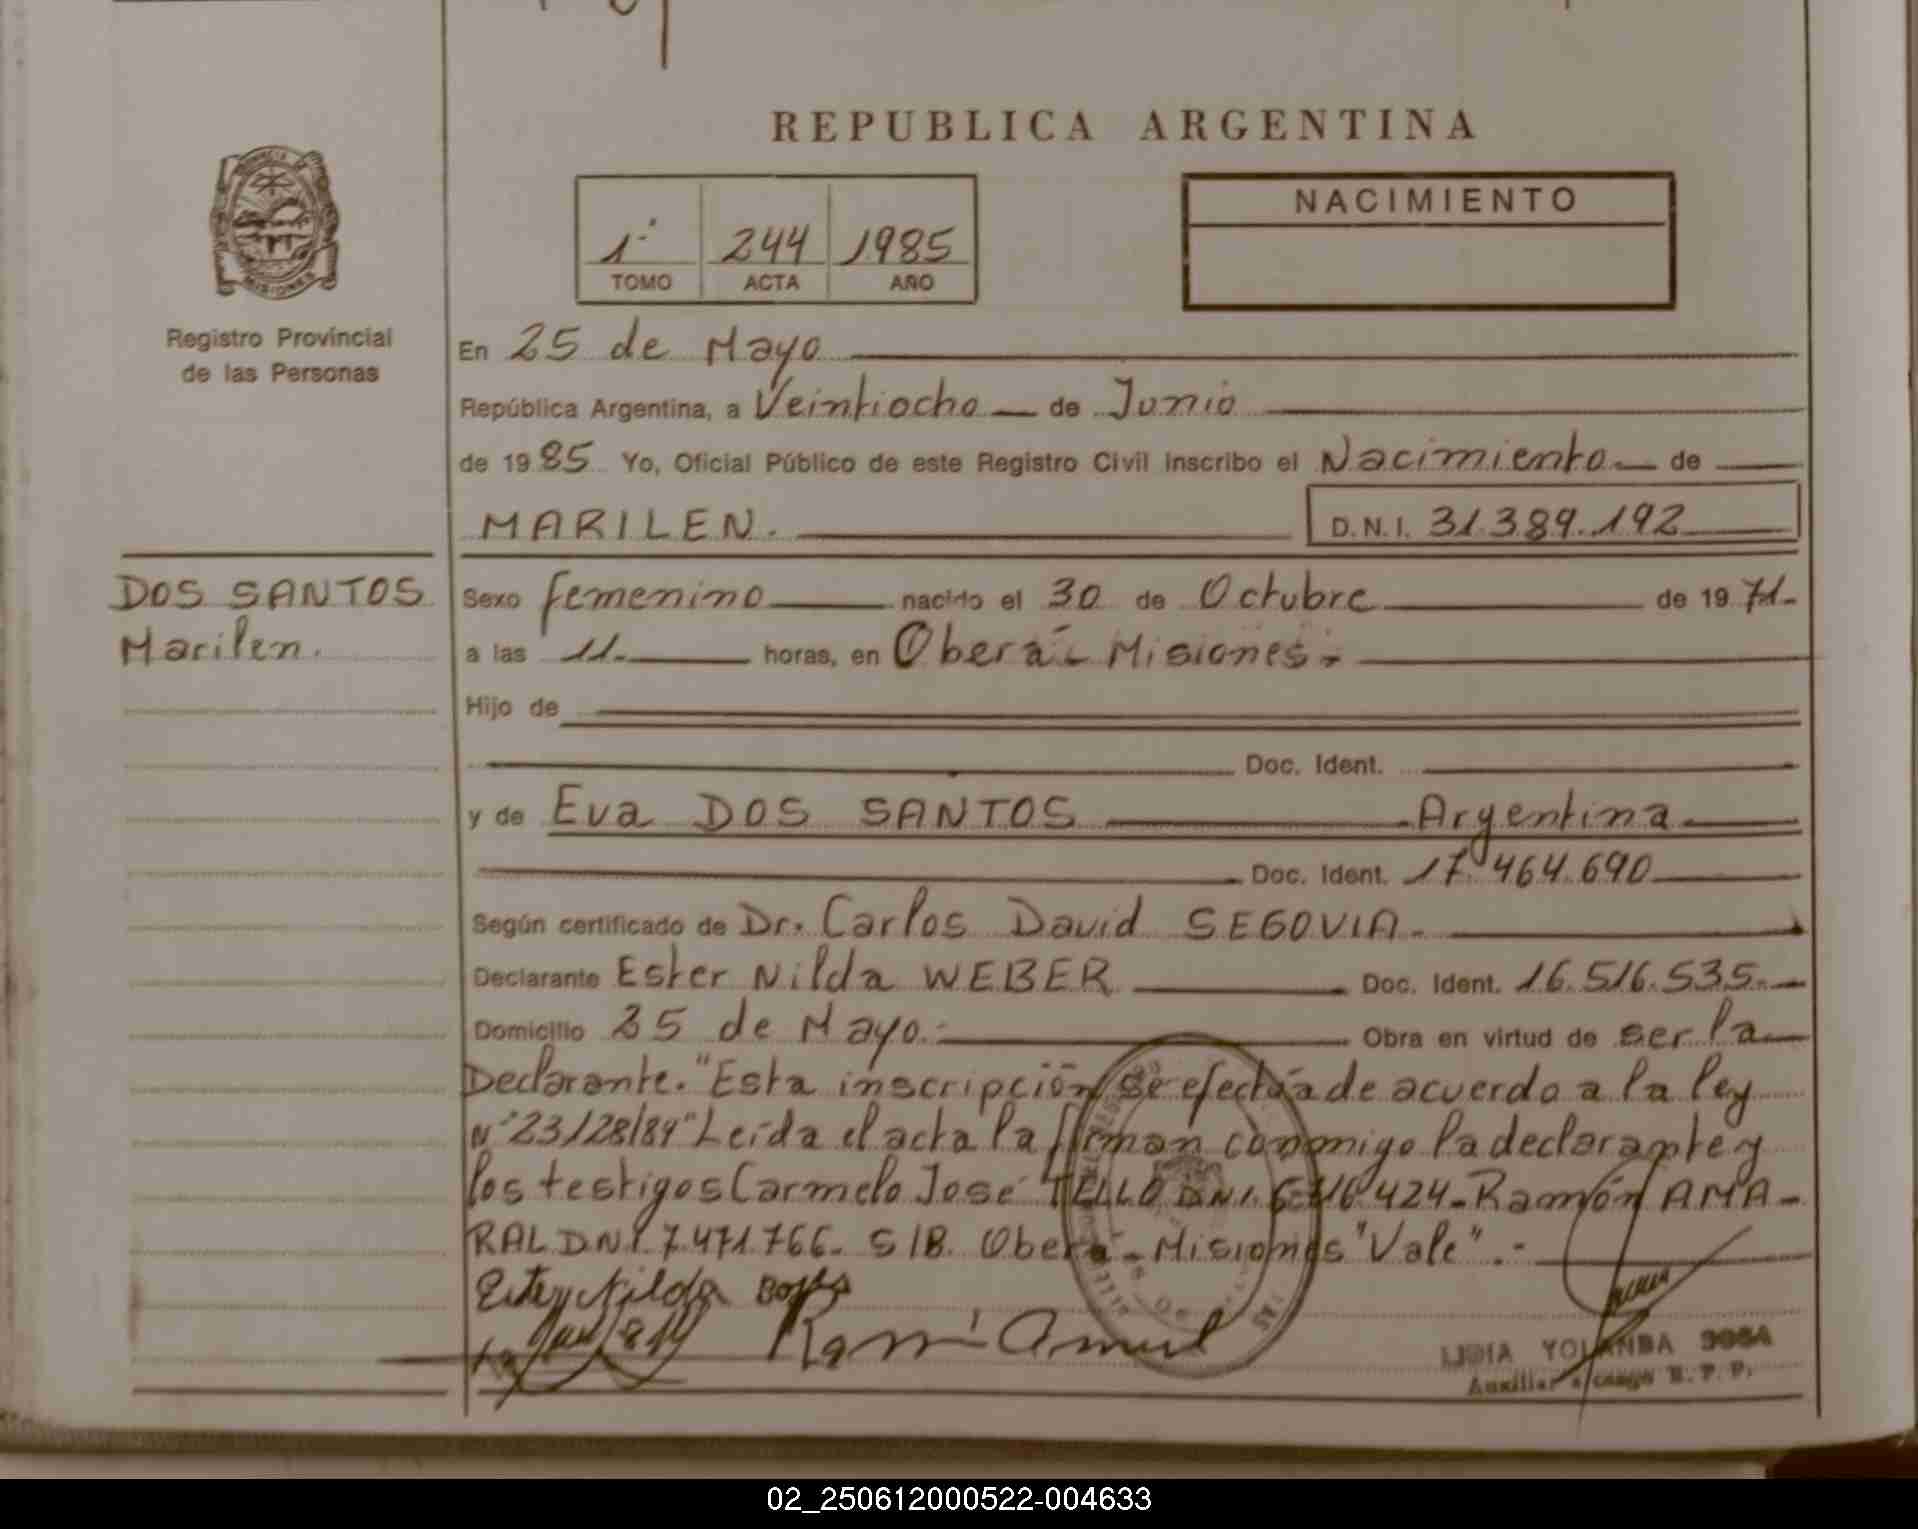 REPUBLICA ARGENTINA
PROVINCIA DE
MISIONES
Registro Provincial
de las Personas
1° 244 1985
TOMO ACTA AÑO
NACIMIENTO
En 25 de Mayo
República Argentina, a Veintiocho de Junio
de 1985 Yo, Oficial Público de este Registro Civil inscribo el Nacimiento de
MARILEN. D.N.I. 31.389.192
DOS SANTOS
Marilen.
Sexo femenino nacido el 30 de Octubre de 1971-
a las 11- horas, en Oberá - Misiones.-
Hijo de
Doc. Ident.
y de Eva DOS SANTOS Argentina
Doc. Ident. 17.464.690
Según certificado de Dr. Carlos David SEGOVIA.
Declarante Ester Nilda WEBER Doc. Ident. 16.516.535.-
Domicilio 25 de Mayo.- Obra en virtud de ser la
Declarante. "Esta inscripción se efectúa de acuerdo a la ley
N° 23128/84" Leída el acta la firman conmigo la declarante y
los testigos Carmelo José TELLO DNI. 424-Ramón AMA-
RAL DNI 7.471.766. S/B. Oberá - Misiones "Vale".-
Ester Nilda
Ramón
LIDIA YOLANDA SOSA
Auxiliar a cargo R. P. P.
02_250612000522-004633